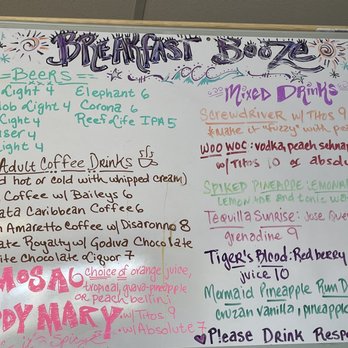 Breakfast Booze
=Beers=
Light 4
Light 4
Light 4
4
Light 4
Elephant 6
Corona 6
Reef Life IPA 5
Adult Coffee Drinks
hot or cold with whipped cream)
Coffee w/ Baileys 6
Caribbean Coffee 6
Amaretto Coffee w/ Disaronno 8
Royalty w/ Godiva Chocolate
Chocolate Liquor 7
MOSA 6 choice of orange juice,
tropical, guava-pineapple
or peach bellini
DY MARY w/ Titos 9
Spicy w/ Absolute 7
Mixed Drinks
Screwdriver w/ Titos 9
*Make it "fuzzy" with
Woo Woo: vodka, peach
w/ Titos 10 or
Spiked Pineapple
lemonade and tonic
Tequilla Sunrise: Jose
grenadine 9
Tiger's Blood: Red berry
juice 10
Mermaid Pineapple Rum
cruzan vanilla, pineapple
♥ Please Drink